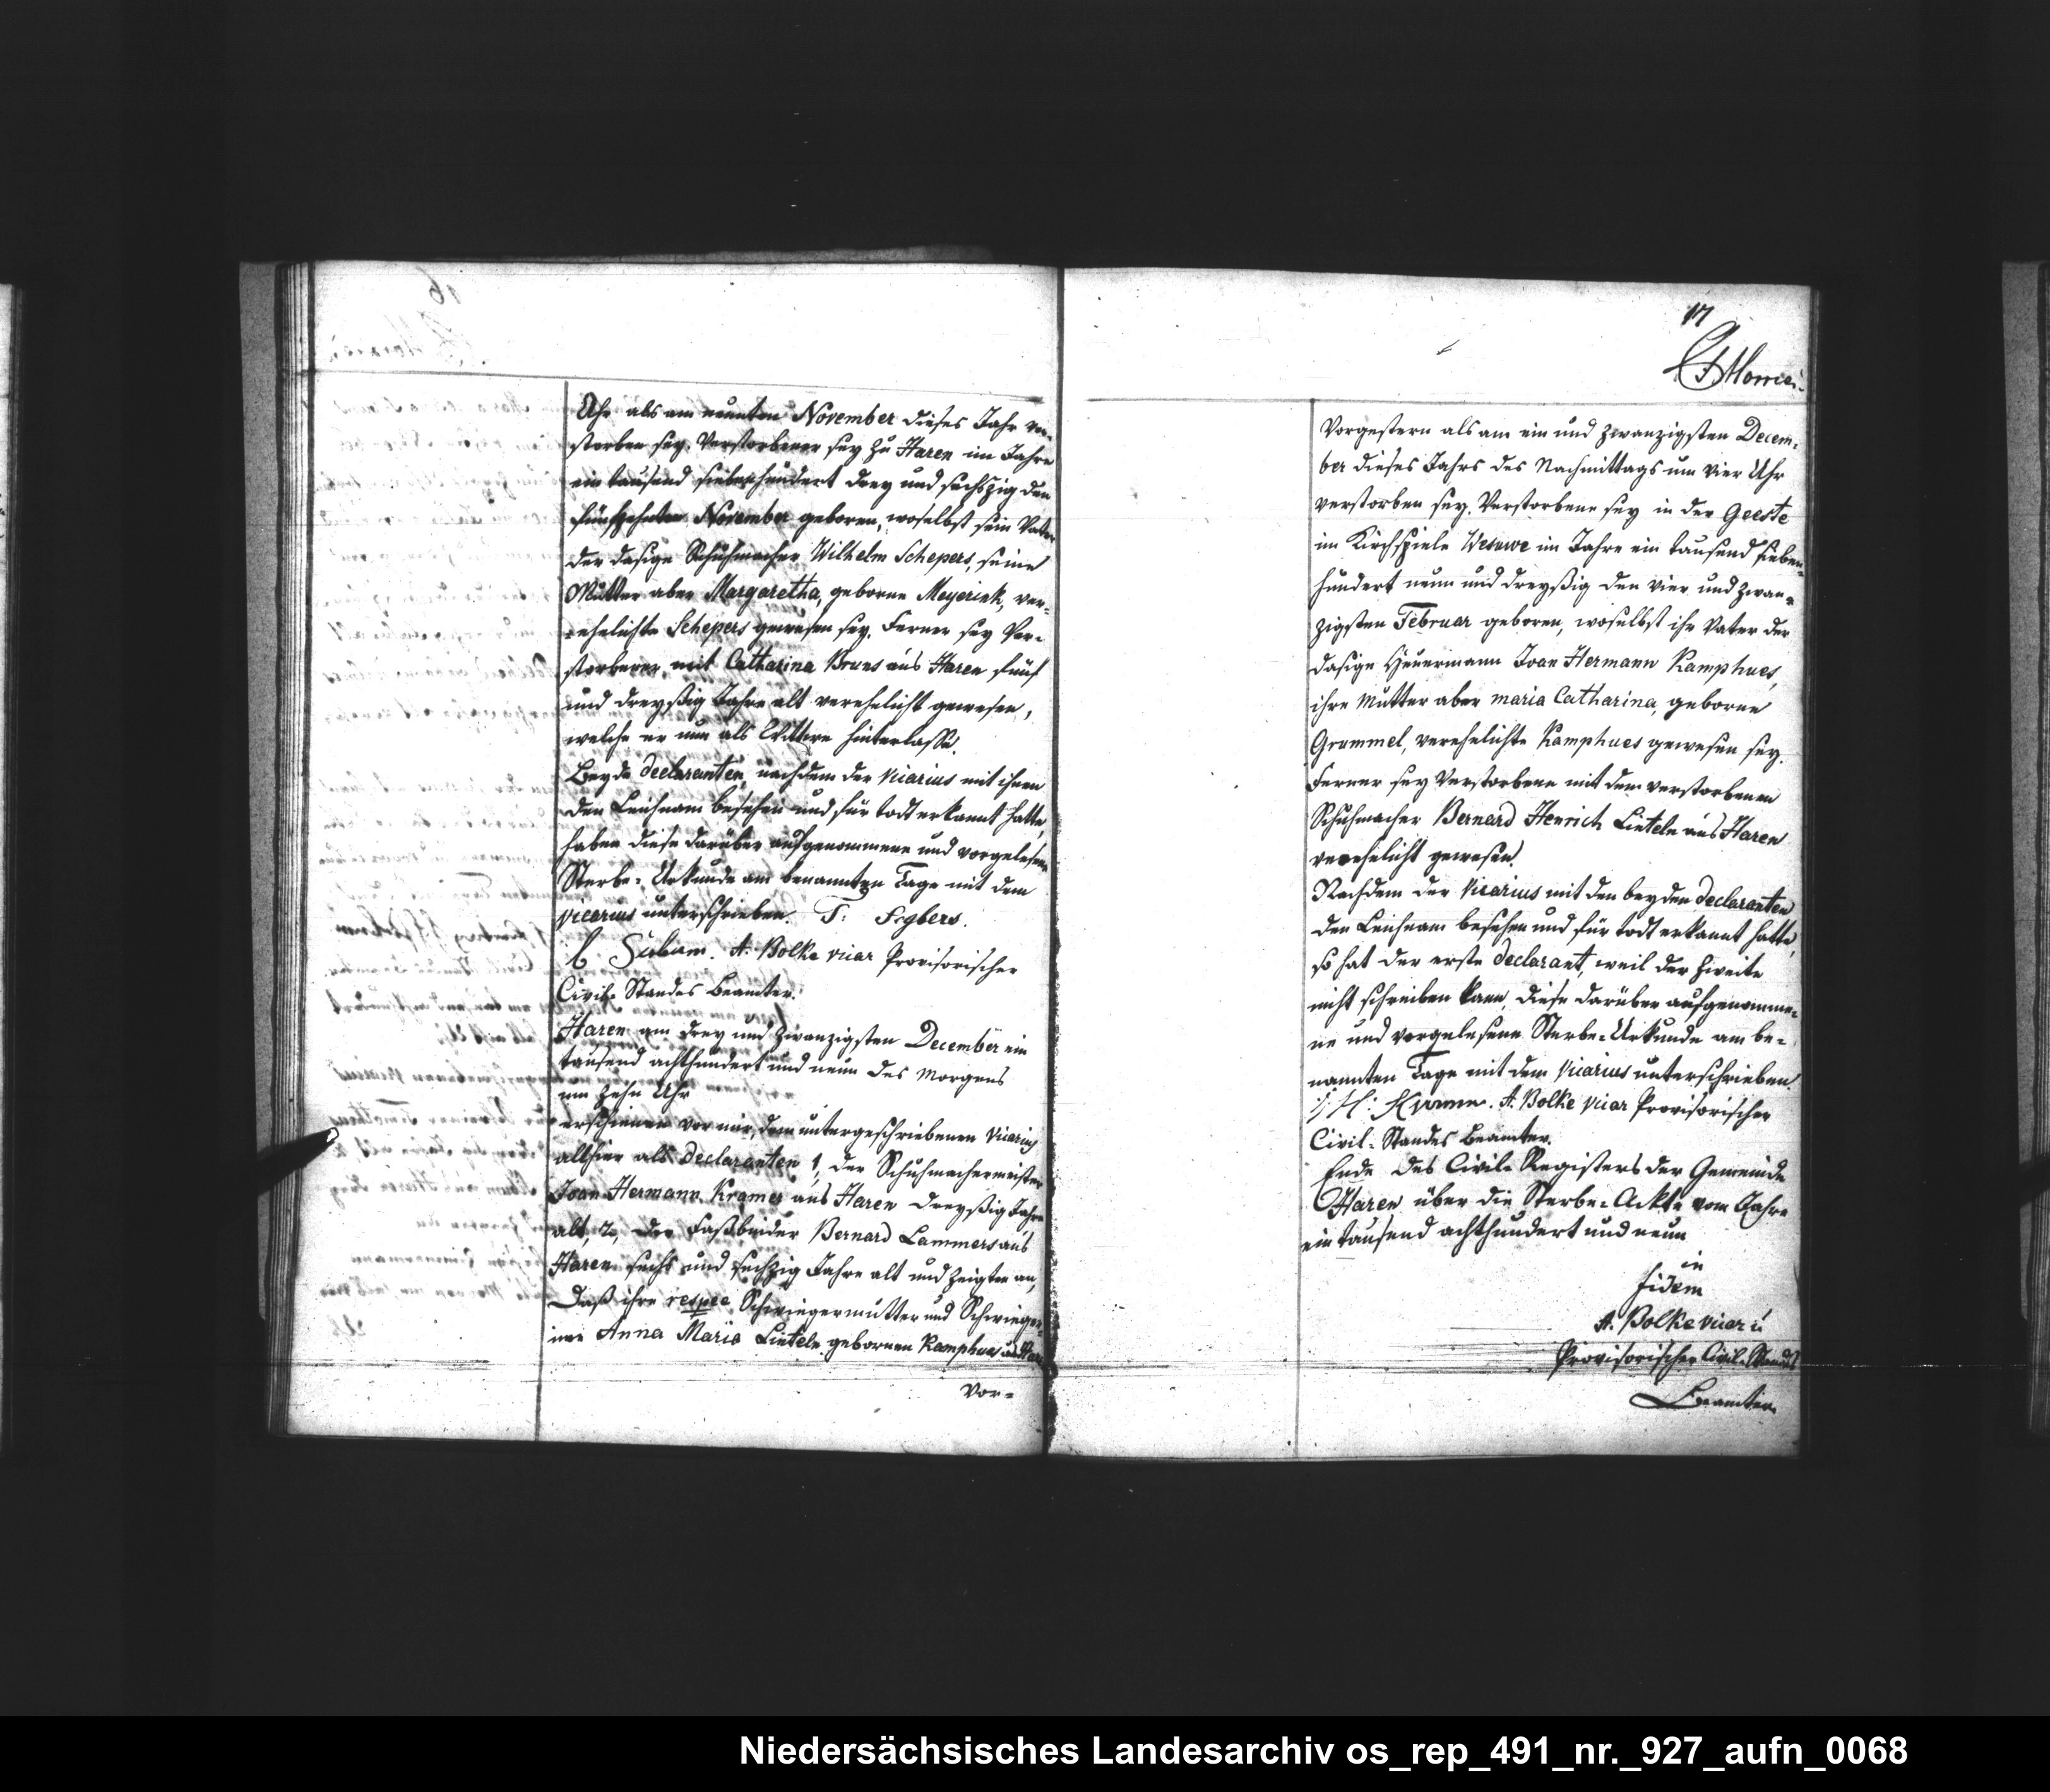 Uhr als am neunten November dieses Jahr ver-
storben sey. Verstorbener sey zu Haren im Jahre
ein tausend siebenhundert drey und sechszig den
fünfzehnten November geboren, woselbst sein Vater
der dasige Schuhmacher Wilhelm Schepers, seine
Mutter aber Margaretha, geborne Meyerink, ver-
ehelichte Schepers gewesen sey. Ferner sey Ver-
storbener mit Catharina Bruns aus Haren fünf
und dreyßig Jahre alt verehelicht gewesen,
welche er nun als Wittwe hinterlasse.
Beyde declaranten, nachdem der vicarius mit ihnen
den Leichnam besehen und für todt erkannt hatte,
haben diese darüber aufgenommene und vorgelesene
Sterbe-Urkunde am benannten Tage mit dem
vicarius unterschrieben. T: Segbers.
A. Bolke vicar Provisorischer
Civil-Standes Beamter.
Haren am drey und zwanzigsten December ein
tausend achthundert und neun des Morgens
um zehn Uhr
erschienen vor mir, dem untergeschriebenen Vicarius
allhier als declaranten 1, der Schuhmachermeister
Joan Hermann Kramer aus Haren dreyßig Jahre
alt, 2, der Faßbinder Bernard Lammers aus
Haren sechs und sechzig Jahre alt und zeigten an,
daß ihre respee Schwiegermutter und Schwieger-
inn Anna Maria Lieteln gebornen Kamphues
Vor-
17
Vorgestern als am ein und zwanzigsten Decem-
ber dieses Jahrs des Nachmittags um vier Uhr
verstorben sey. Verstorbene sey in der Geeste
im Kirchspiele Wesuwe im Jahre ein tausend sieben-
hundert neun und dreyßig den vier und zwan-
zigsten Februar geboren, woselbst ihr Vater der
dasige Heuermann Joan Hermann Kamphues,
ihre Mutter aber maria Catharina, geborne
Grummel, verehelichte Kamphues gewesen sey.
Ferner sey Verstorbene mit dem verstorbenen
Schuhmacher Bernard Henrich Lieteln aus Haren
verehelicht gewesen.
Nachdem der Vicarius mit den beyden declaranten
den Leichnam besehen und für todt erkannt hatte,
so hat der erste declarant, weil der zweite
nicht schreiben kann, diese darüber aufgenomme-
ne und vorgelesene Sterbe-Urkunde am be-
nannten Tage mit dem Vicarius unterschrieben.
J H: Kramer. A. Bolke vicar Provisorischer
Civil-Standes Beamter.
Ende des Civil-Registers der Gemeinde
Haren über die Sterbe-Ackte vom Jahre
ein tausend achthundert und neun
in
fidem
A. Bolke vicar
Provisorischer Civil-Standes
Beamter.
Niedersächsisches Landesarchiv os_rep_491_nr._927_aufn_0068